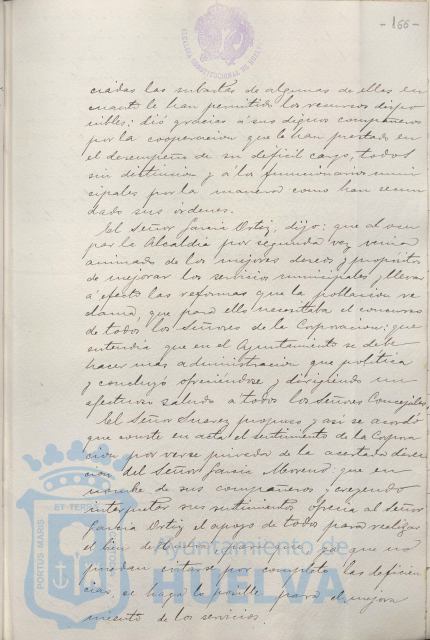 - 166 -
ciadas las subastas de algunas de ellas en
cuanto le han permitido los recursos dispo
nibles: dió gracias á sus dignos compañeros
por la cooperacion que le han prestado en
el desempeño de su dificil cargo, todos
sin distincion y á los funcionarios muni
cipales por la manera como han secun
dado sus órdenes.
El Señor Garcia Ortiz, dijo: que al ocu
par la Alcaldia por segunda vez venia
animado de los mejores deseos y propósitos
de mejorar los servicios municipales y llevar
á efecto las reformas que la poblacion re
clama, que para ello necesitaba el concurso
de todos los Señores de la Corporacion: que
entendia que en el Ayuntamiento se debe
hacer mas administracion que politica
y concluyó ofreciendose y dirigiendo un
afectuoso saludo á todos los Señores Concejales.
El Señor Suarez propuso y así se acordó
que conste en acta el sentimiento de la Corpora
cion por verse privada de la acertada direc
cion del Señor Garcia Moreno: que en
nombre de sus compañeros y creyendo
interpretar sus sentimientos ofrecia al Señor
Garcia Ortiz el apoyo de todos para realizar
el bien de Huelva para que ya que no
puedan evitarse por completo las deficien
cias, se haga lo posible para el mejora
miento de los servicios.
PORTUS MARIS ET TERRÆ
Ayuntamiento de
HUELVA